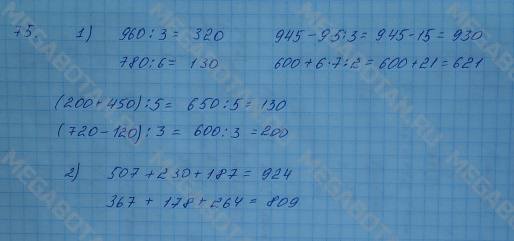 75. 1) 960:3 = 320 945-9·5:3 = 945-15 = 930
780:6 = 130 600+6·7:2 = 600+21 = 621
(200+450):5 = 650:5 = 130
(720-120):3 = 600:3 = 200
2) 507+230+187 = 924
367 + 178 + 264 = 809
MEGABOTAN.RU